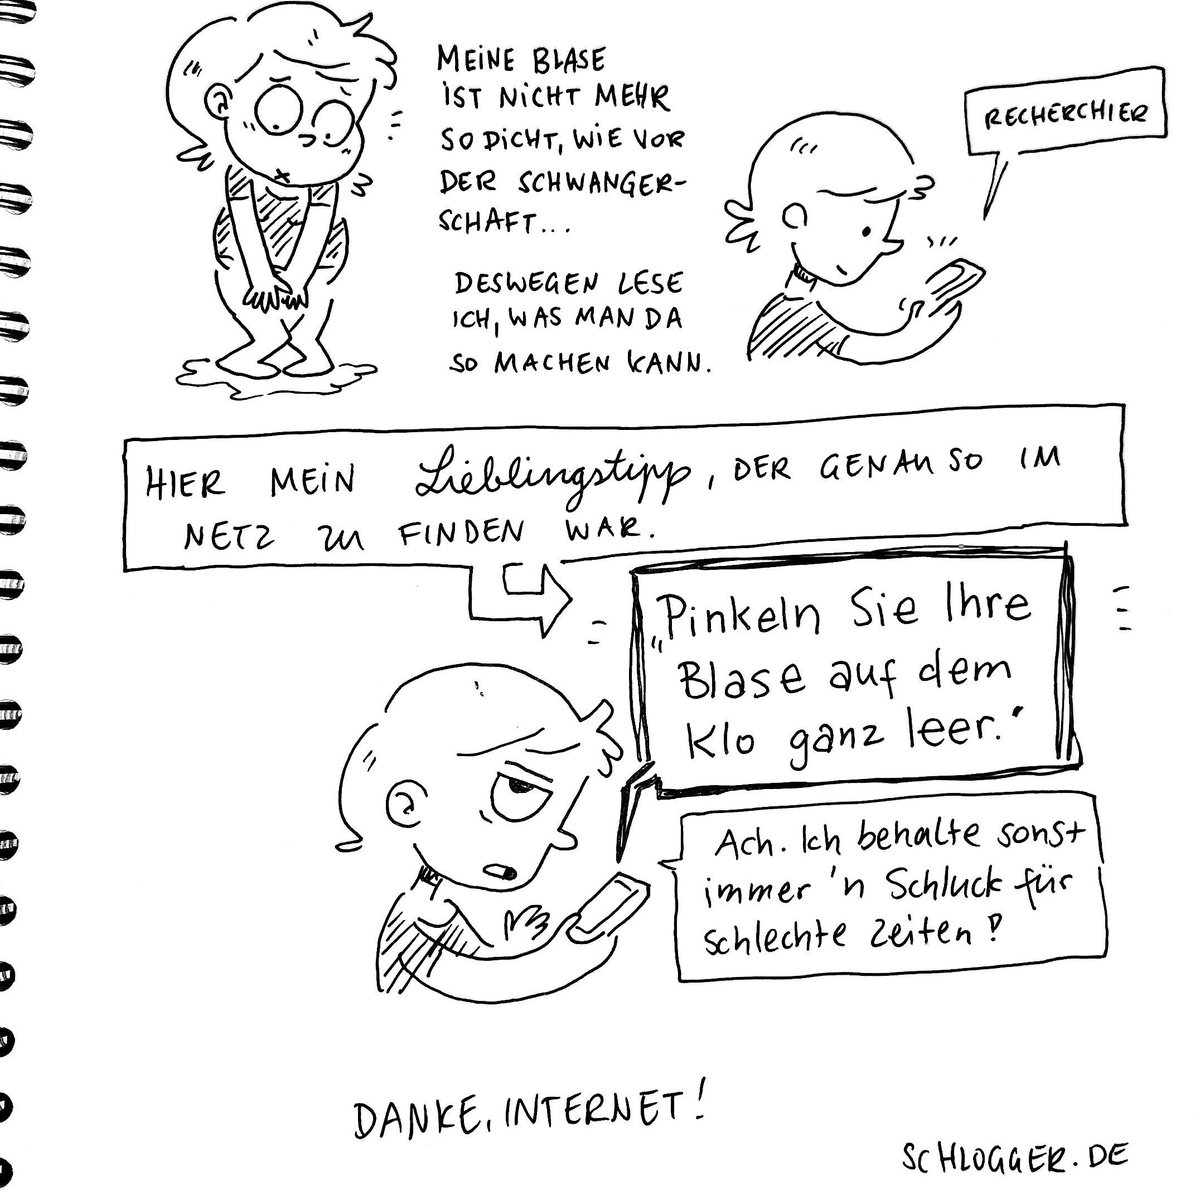 MEINE BLASE
IST NICHT MEHR
SO DICHT, WIE VOR
DER SCHWANGER-
SCHAFT...
DESWEGEN LESE
ICH, WAS MAN DA
SO MACHEN KANN.
RECHERCHIER
HIER MEIN Lieblingstipp, DER GENAU SO IM
NETZ ZU FINDEN WAR.
„Pinkeln Sie Ihre
Blase auf dem
Klo ganz leer.“
Ach. Ich behalte sonst
immer 'n Schluck für
schlechte Zeiten!
DANKE, INTERNET!
SCHLOGGER.DE